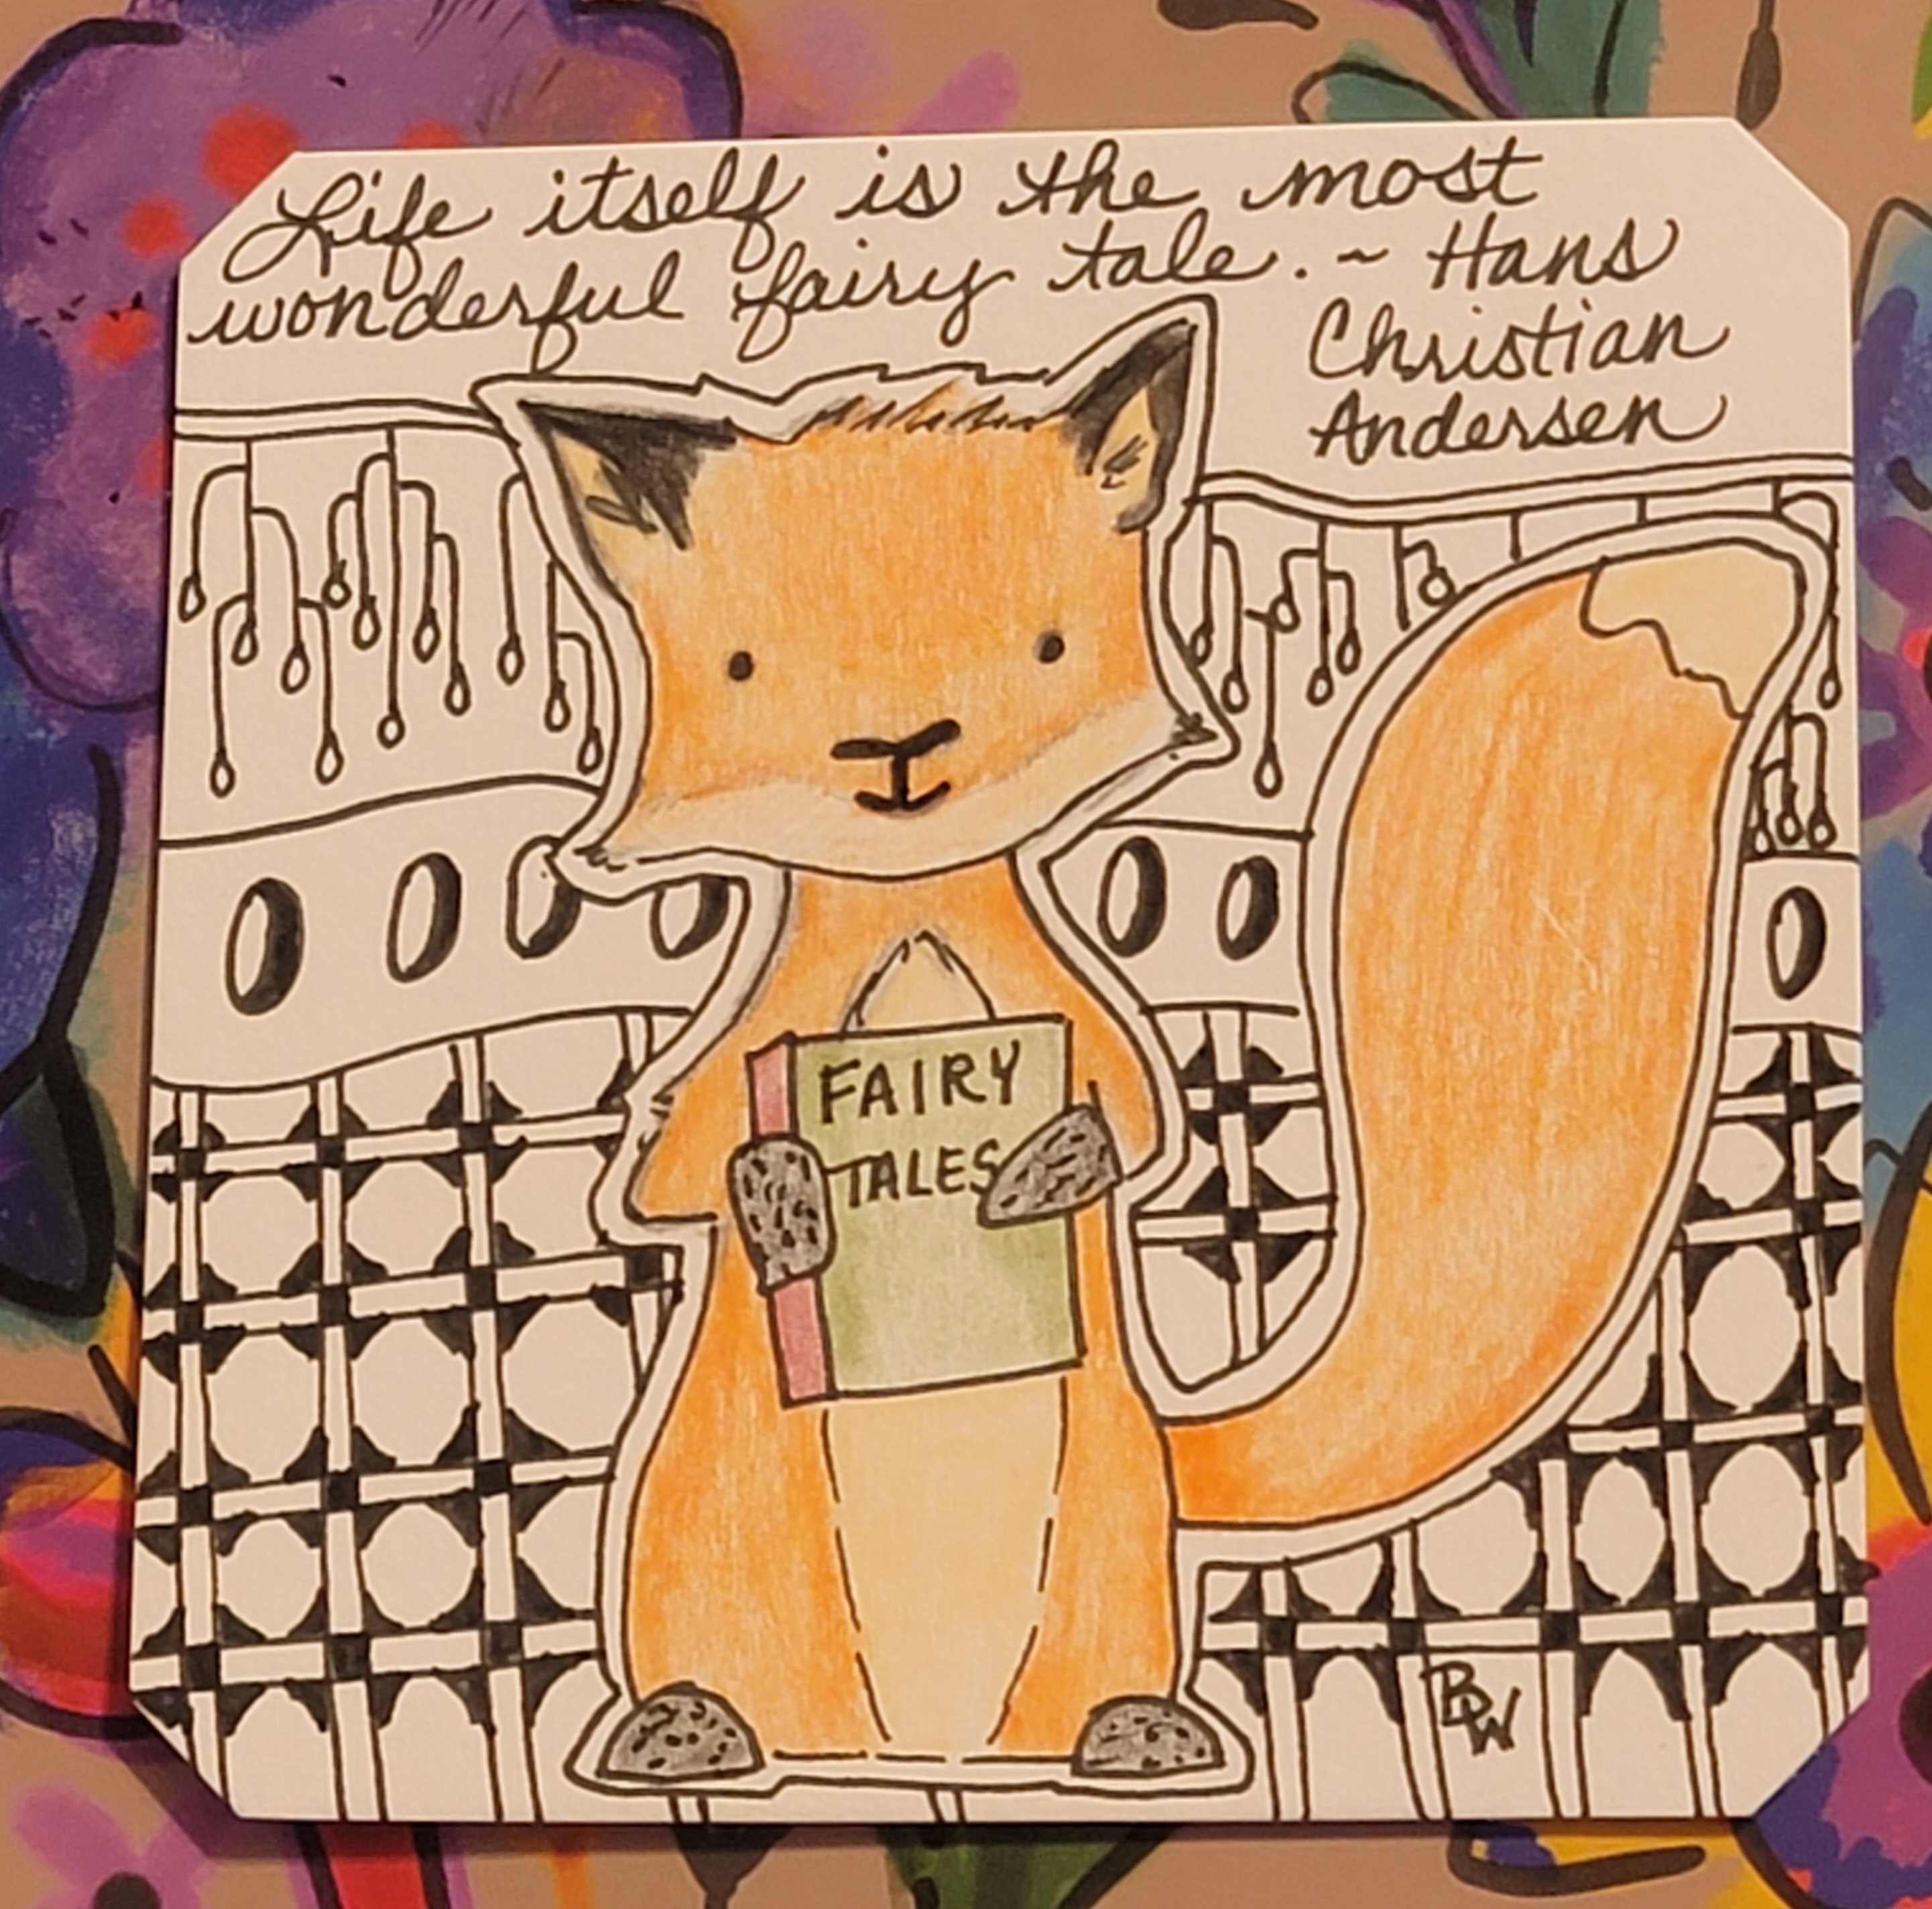 Life itself is the most
wonderful fairy tale. ~ Hans
Christian
Andersen
FAIRY
TALES
BW